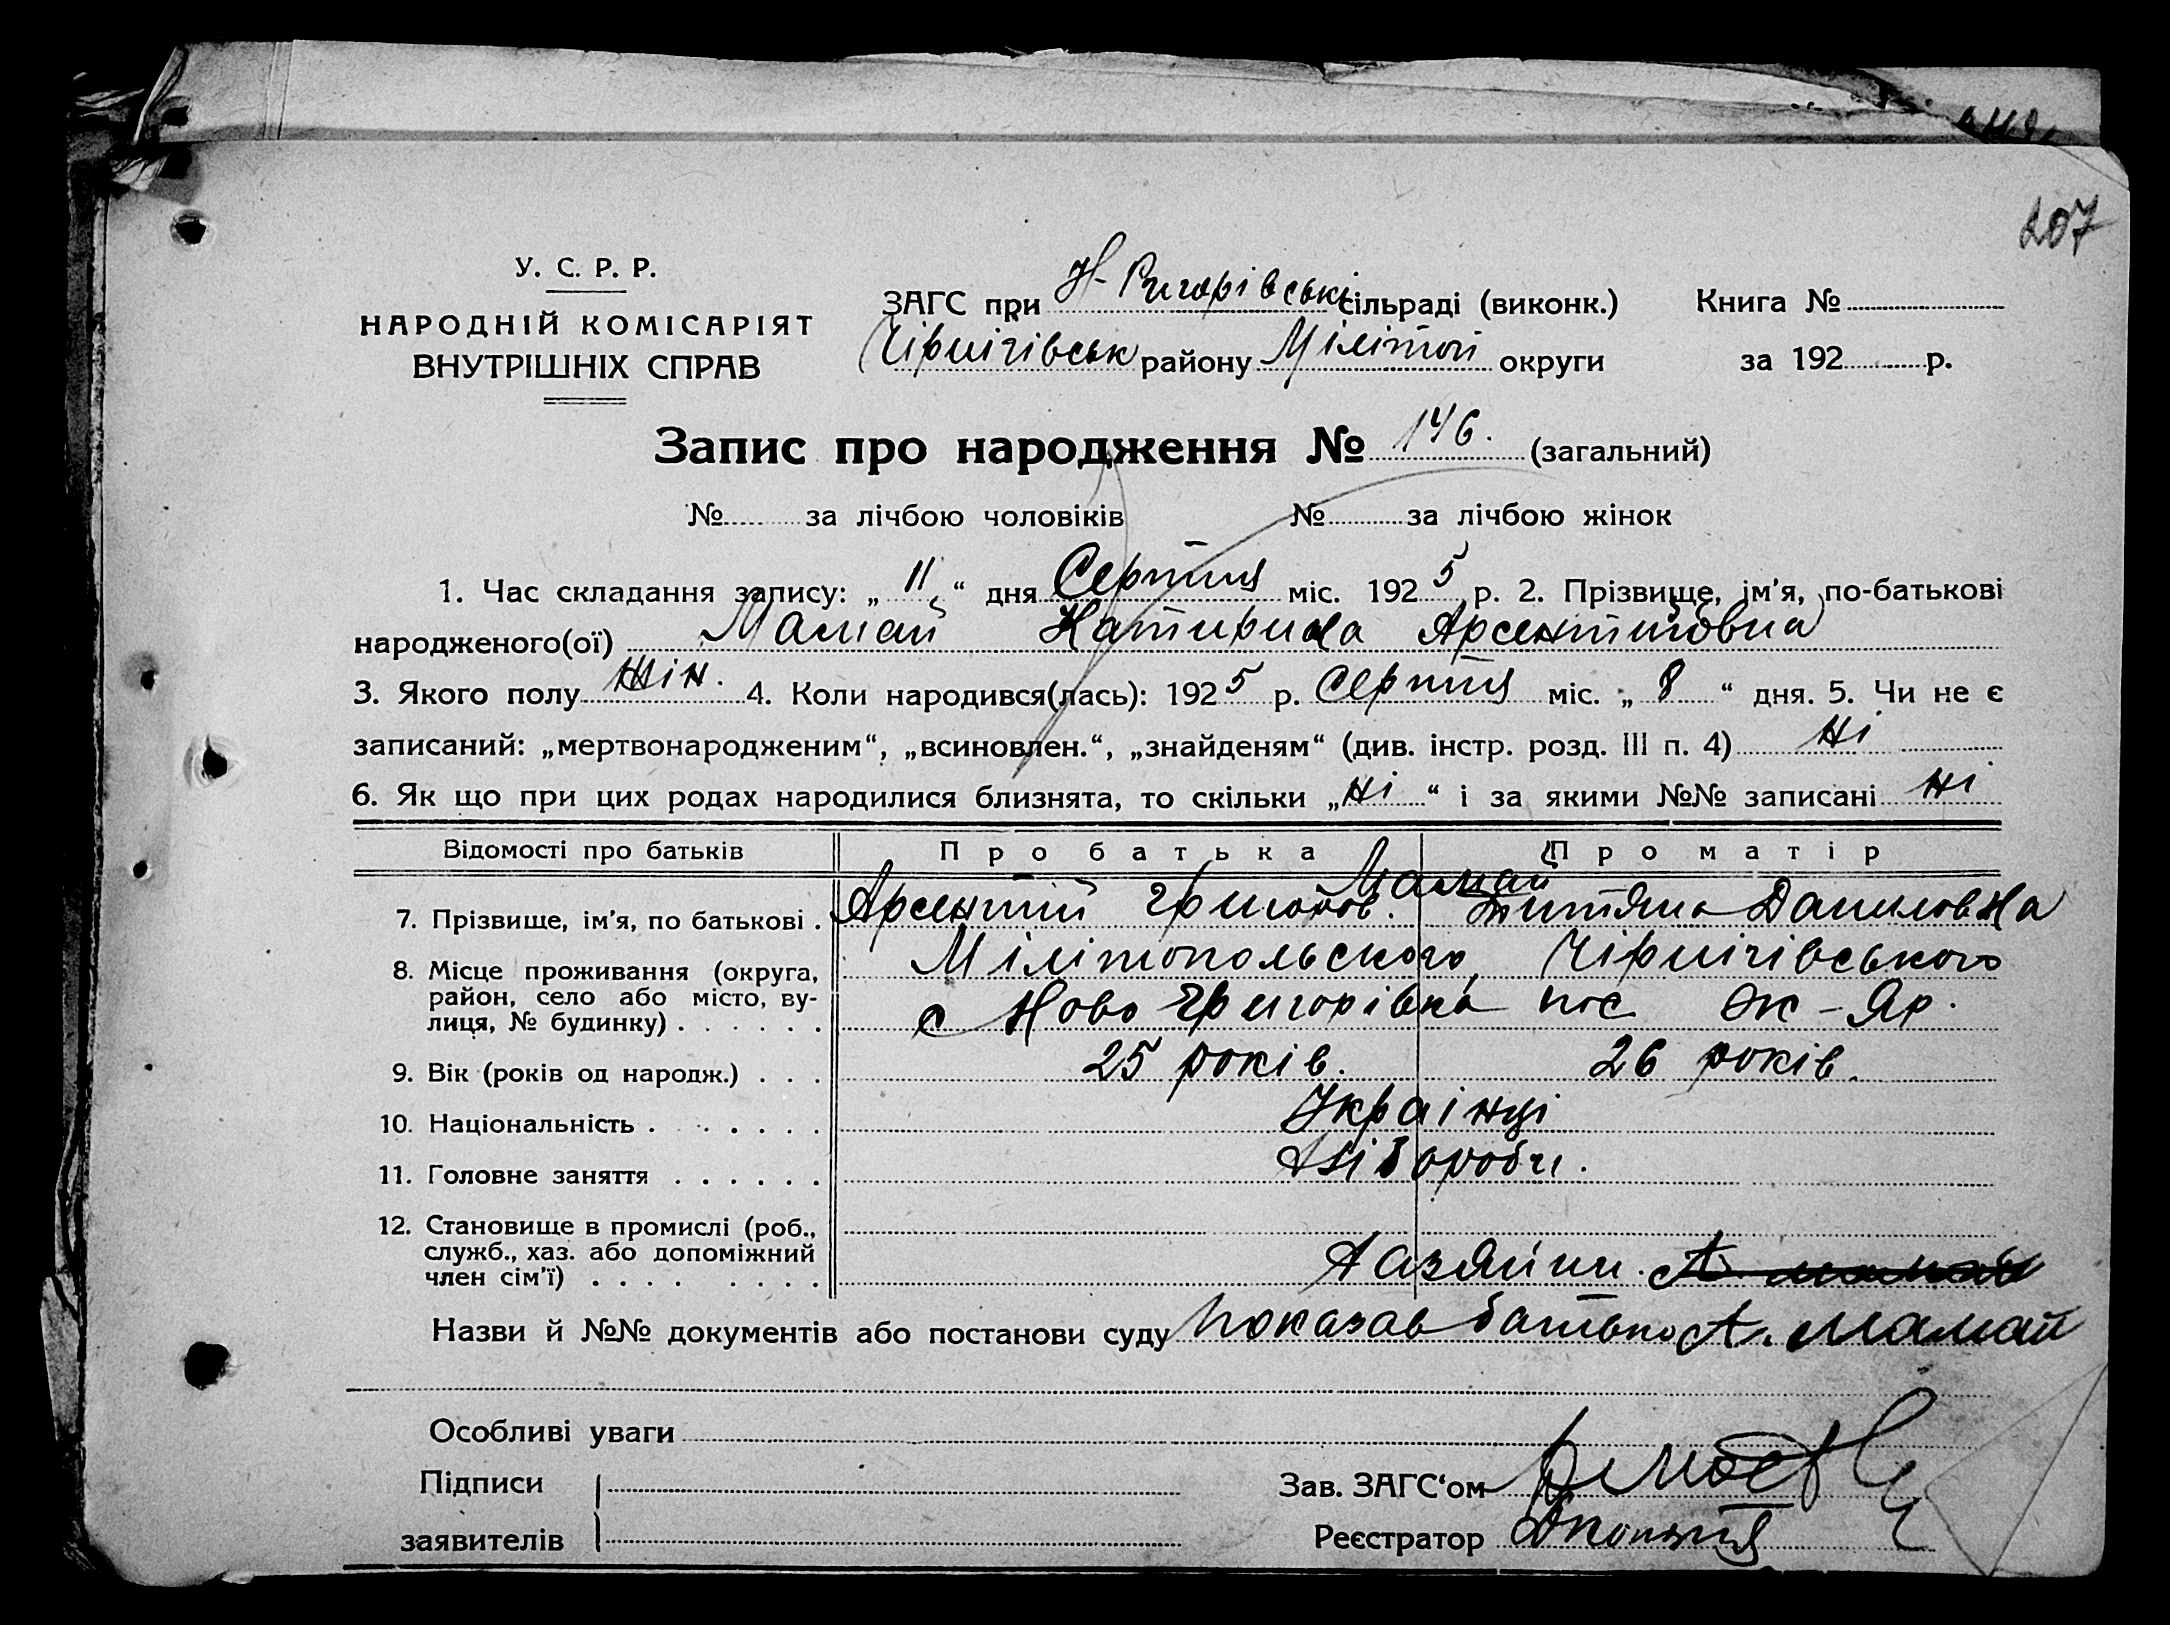 207
У. С. Р. Р.
НАРОДНІЙ КОМІСАРІЯТ
ВНУТРІШНІХ СПРАВ
ЗАГС при Н-Григорівській сільраді (виконк.)
Чірнігівськ району Мілітоп округи
Книга №
за 192 р.
Запис про народження № 146. (загальний)
№ за лічбою чоловіків № за лічбою жінок
1. Час складання запису: „ 11 “ дня Серпня міс. 192 5 р. 2. Прізвище, ім'я, по-батькові
народженого(ої) Мамай Катирина Арсентиовна
3. Якого полу жін. 4. Коли народився(лась): 192 5 р. Серпня міс. „ 8 “ дня. 5. Чи не є
записаний: „мертвонародженим“, „всиновлен.“, „знайденям“ (див. інстр. розд. III п. 4) Ні
6. Як що при цих родах народилися близнята, то скільки „ Ні “ і за якими №№ записані Ні
Відомості про батьків Про батька Про матір
Мамай
7. Прізвище, ім'я, по батькові . Арсентій Григоров. Титяна Даниловна
8. Місце проживання (округа, район, село або місто, вулиця, № будинку) . . . . . . Мілітопольского, Чірнігівського
с Ново Григорівка пос Ж-Яр.
9. Вік (років од народж.) . . . 25 років. 26 років.
10. Національність . . . . . . . Українці
11. Головне заняття . . . . . . Хлібороби.
12. Становище в промислі (роб., служб., хаз. або допоміжний член сім'ї) . . . . . . . . Хазяйни. А. мамай
Назви й №№ документів або постанови суду показав батько А. Мамай
Особливі уваги
Підписи
заявителів
Зав. ЗАГС‘ом
Реєстратор